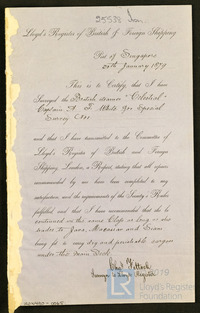 25538 Iron
Lloyd's Register of British & Foreign Shipping
Port of Singapore
30th January 1879
This is to Certify, that I have
Surveyed the British steamer "Celestial"
Captain A. D. White for Special
Survey
and that I have transmitted to the Committee of
Lloyd's Register of British and Foreign
Shipping, London, a Report, stating that all repairs
recommended by me have been completed to my
satisfaction, and the requirements of the Society's Rules
fulfilled and that I have recommended that she be
continued in the same Class as long as she
trades to Java, Macassar and Siam
being fit to carry dry and perishable cargoes
under the Main Deck.
Surveyor to Lloyd's Register
LR
2019